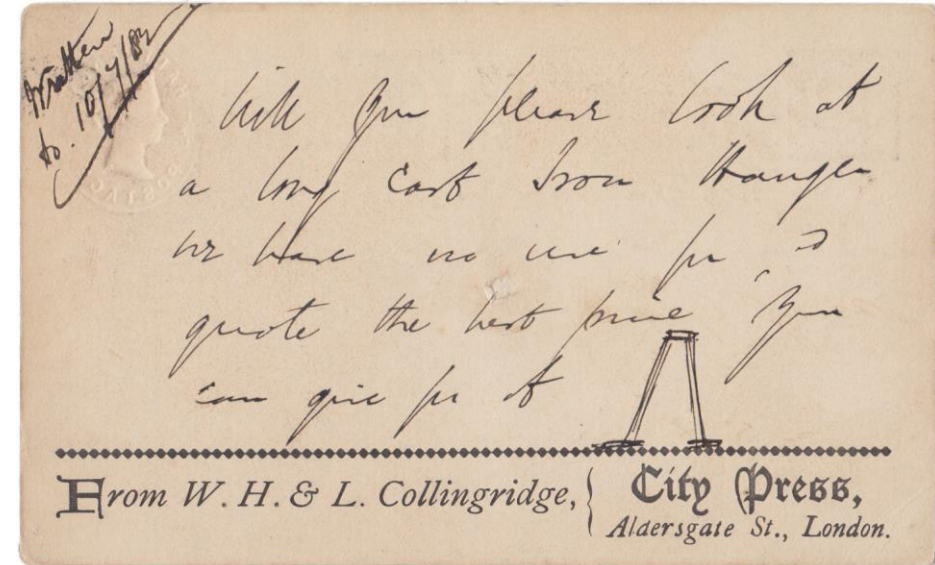 Written
to. 10/7/82
Will you please look at
a long Cast Iron Hanger
we have no use for, &
quote the best price you
can give for it
From W. H. & L. Collingridge, { City Press,
Aldersgate St., London.